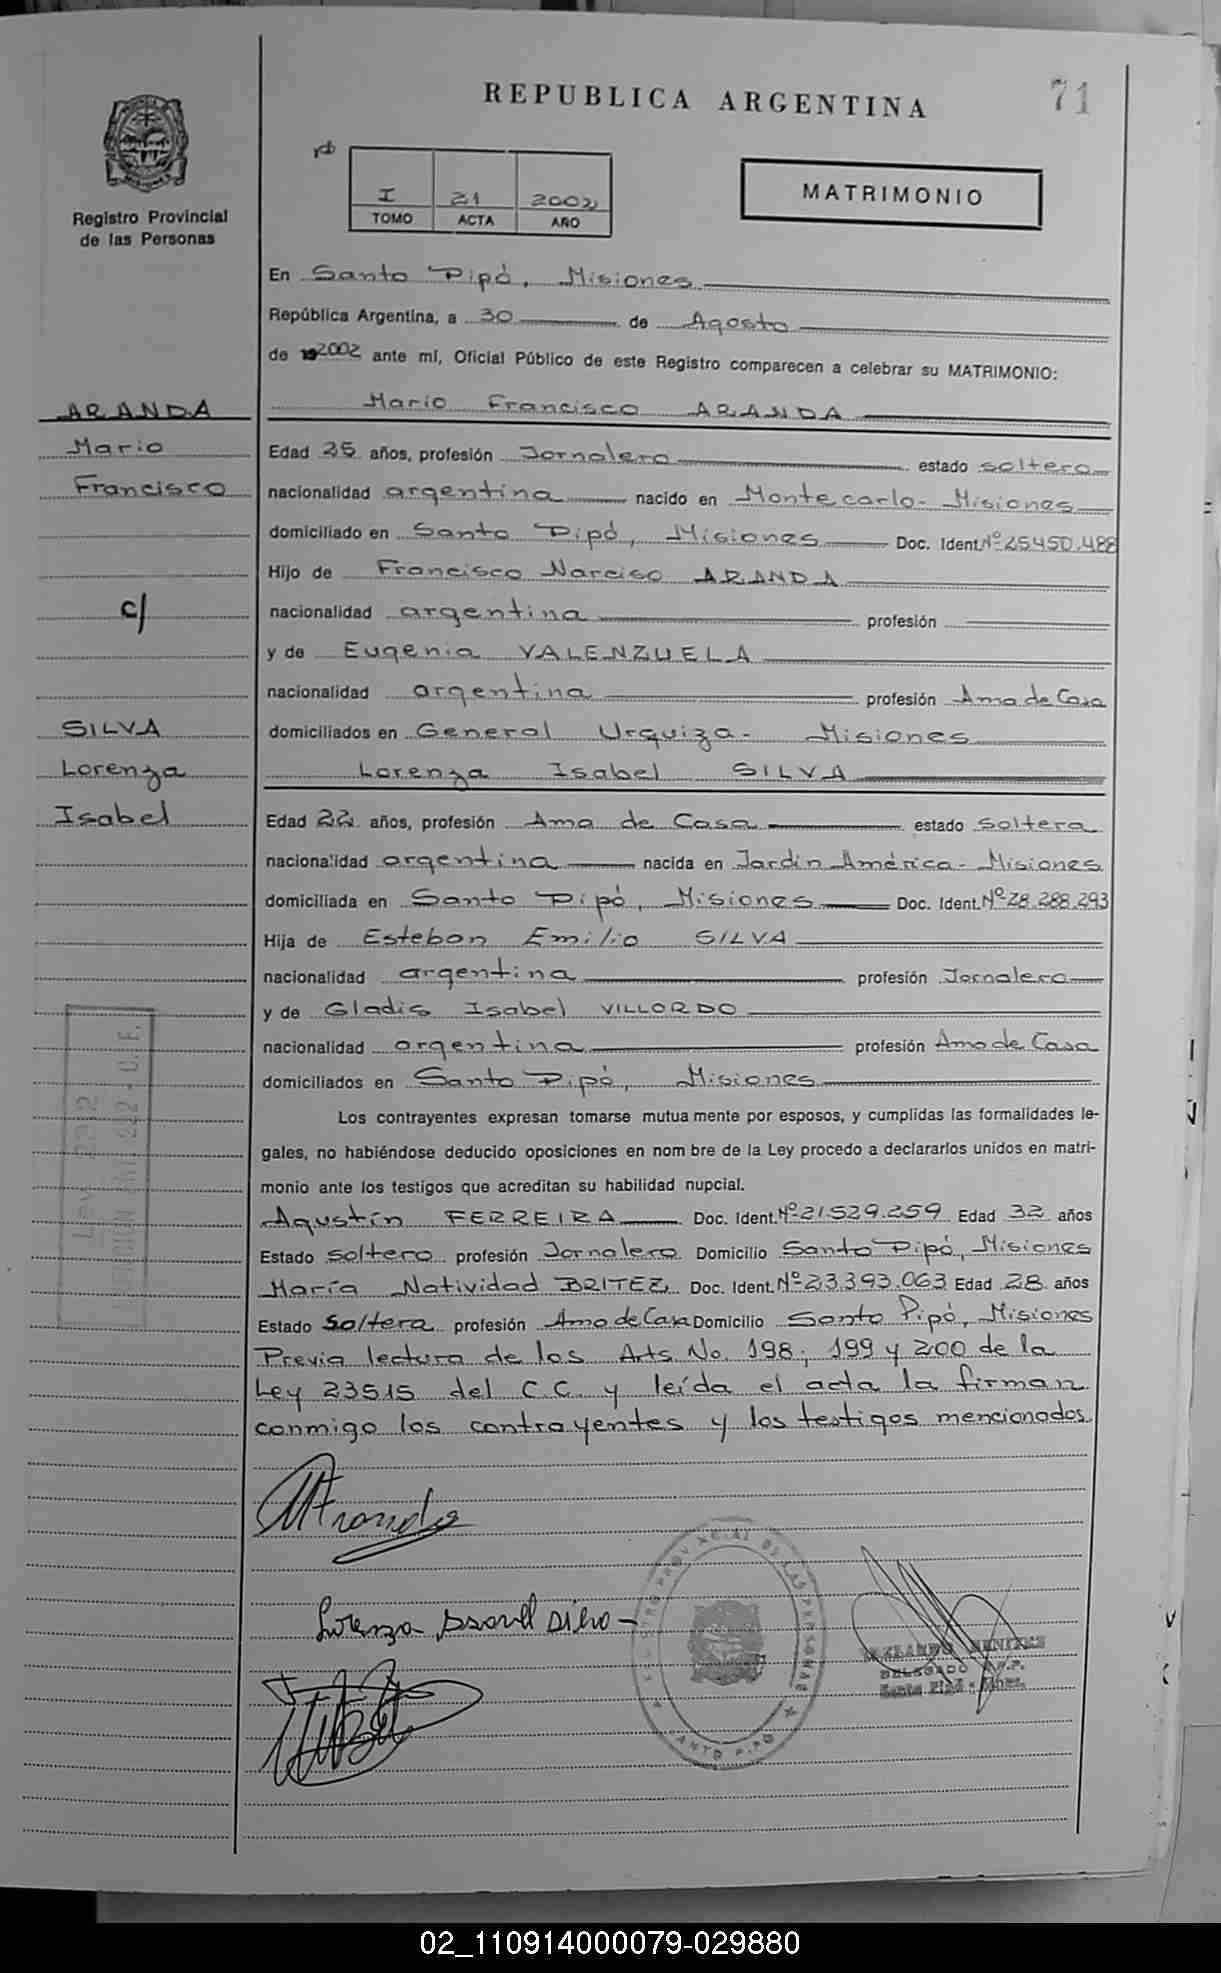 REPUBLICA ARGENTINA
71
Registro Provincial
de las Personas
I 21 2002
TOMO ACTA AÑO
MATRIMONIO
En Santo Pipó, Misiones
República Argentina, a 30 de Agosto
de 2002 ante mí, Oficial Público de este Registro comparecen a celebrar su MATRIMONIO:
ARANDA
Mario
Francisco
c/
SILVA
Lorenza
Isabel
Mario Francisco ARANDA
Edad 25 años, profesión Jornalero estado soltero
nacionalidad argentina nacido en Montecarlo - Misiones
domiciliado en Santo Pipó, Misiones Doc. Ident. Nº 25.450.488
Hijo de Francisco Narciso ARANDA
nacionalidad argentina profesión
y de Eugenia VALENZUELA
nacionalidad argentina profesión Ama de Casa
domiciliados en General Urquiza - Misiones
Lorenza Isabel SILVA
Edad 22 años, profesión Ama de Casa estado soltera
nacionalidad argentina nacida en Jardín América - Misiones
domiciliada en Santo Pipó, Misiones Doc. Ident. Nº 28.288.293
Hija de Esteban Emilio SILVA
nacionalidad argentina profesión Jornalero
y de Gladis Isabel VILLORDO
nacionalidad argentina profesión Ama de Casa
domiciliados en Santo Pipó, Misiones
Los contrayentes expresan tomarse mutua mente por esposos, y cumplidas las formalidades le-
gales, no habiéndose deducido oposiciones en nom bre de la Ley procedo a declararlos unidos en matri-
monio ante los testigos que acreditan su habilidad nupcial.
Agustín FERREIRA Doc. Ident. Nº 21.529.259 Edad 32 años
Estado soltero profesión Jornalero Domicilio Santo Pipó, Misiones
María Natividad BRITEZ Doc. Ident. Nº 23.393.063 Edad 28 años
Estado Soltera profesión Ama de Casa Domicilio Santo Pipó, Misiones
Previa lectura de los Arts. No. 198, 199 y 200 de la
Ley 23515 del C.C. y leída el acta la firman
conmigo los contrayentes y los testigos mencionados
Lorenza Isabel Silva
SANTO PIPO
DELEGADO R.P.P.
Santo Pipó - Mnes.
02_110914000079-029880